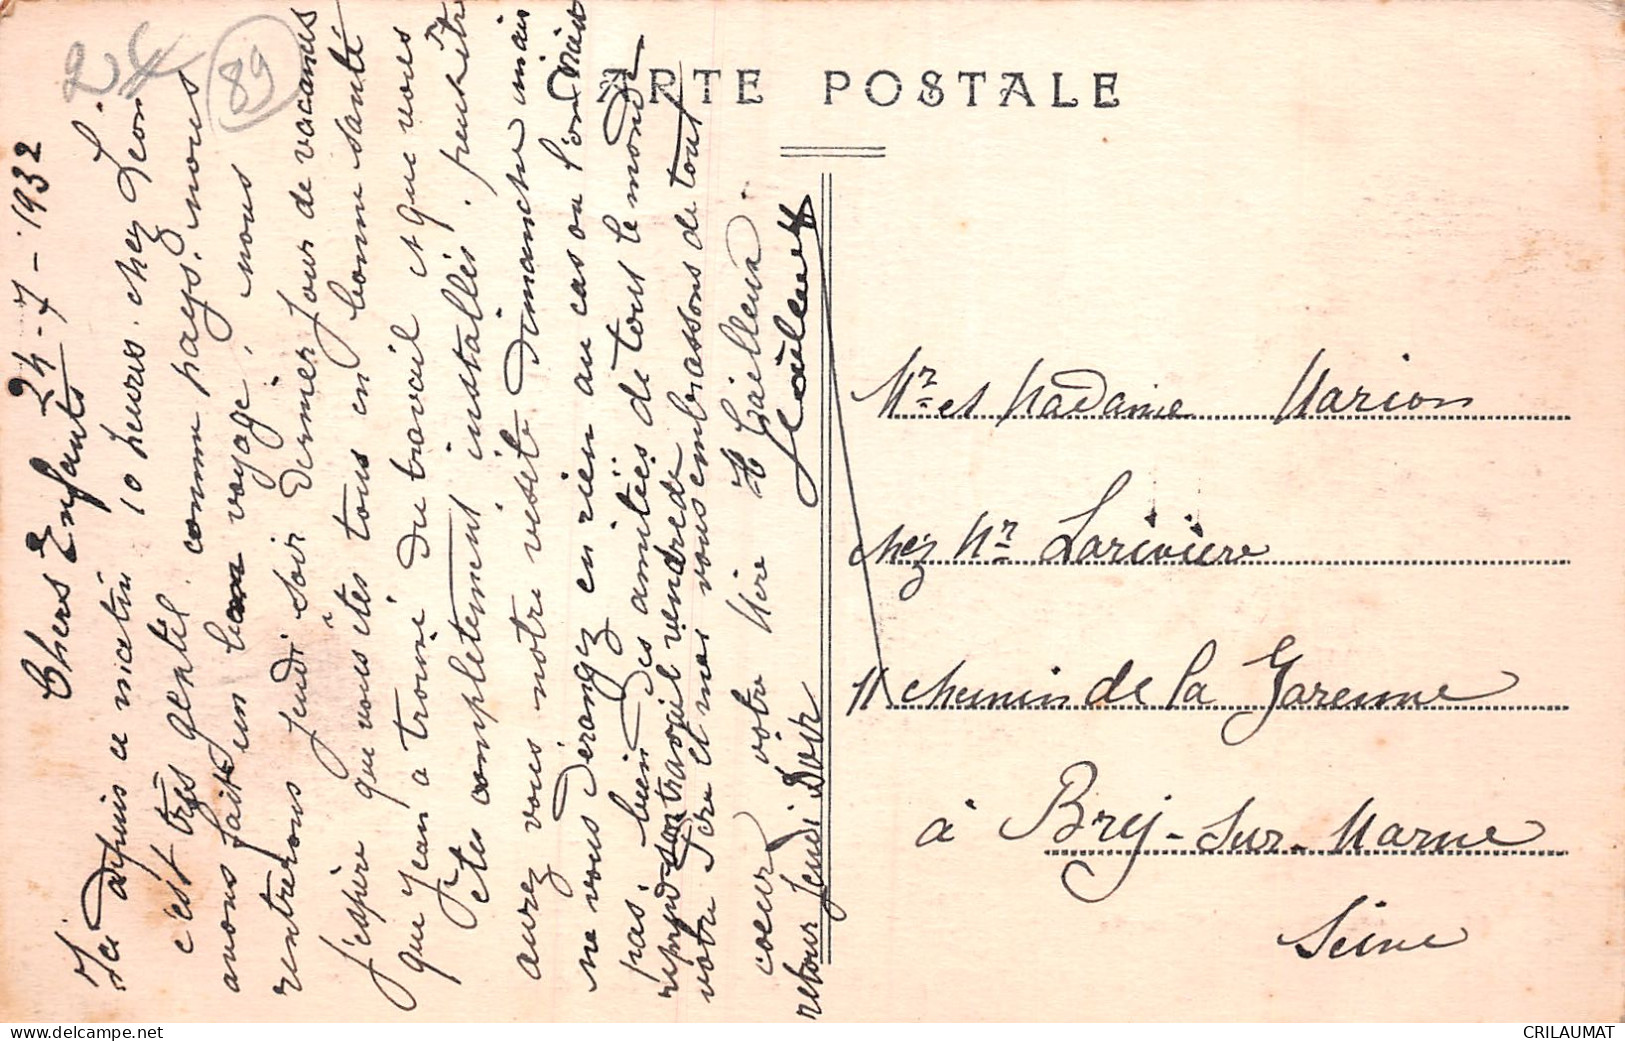 24
89
CARTE POSTALE
24-7-1932
Chers Enfants
Ici depuis ce matin 10 heures chez Léon
c'est très gentil comme pays. nous
avons fait un bon voyage, nous
rentrerons jeudi soir dernier jour de vacances
j'espère que vous êtes tous en bonne santé
que Jean a trouvé du travail et que vous
etes completement installés. peut être
aurez vous notre visite Dimanche mais
ne vous dérangez en rien au cas ou l'on
pas bien des amitiés de tous le monde
reprend son travail vendredi
votre Père et moi vous embrassons de tout
coeur votre Mère H Tailleur
retour Jeudi soir
Mr et Madame Marion
chez Mr Larivière
11 chemin de la Garenne
à Bry-sur-Marne
Seine
https://www.delcampe.net
CRILAUMAT